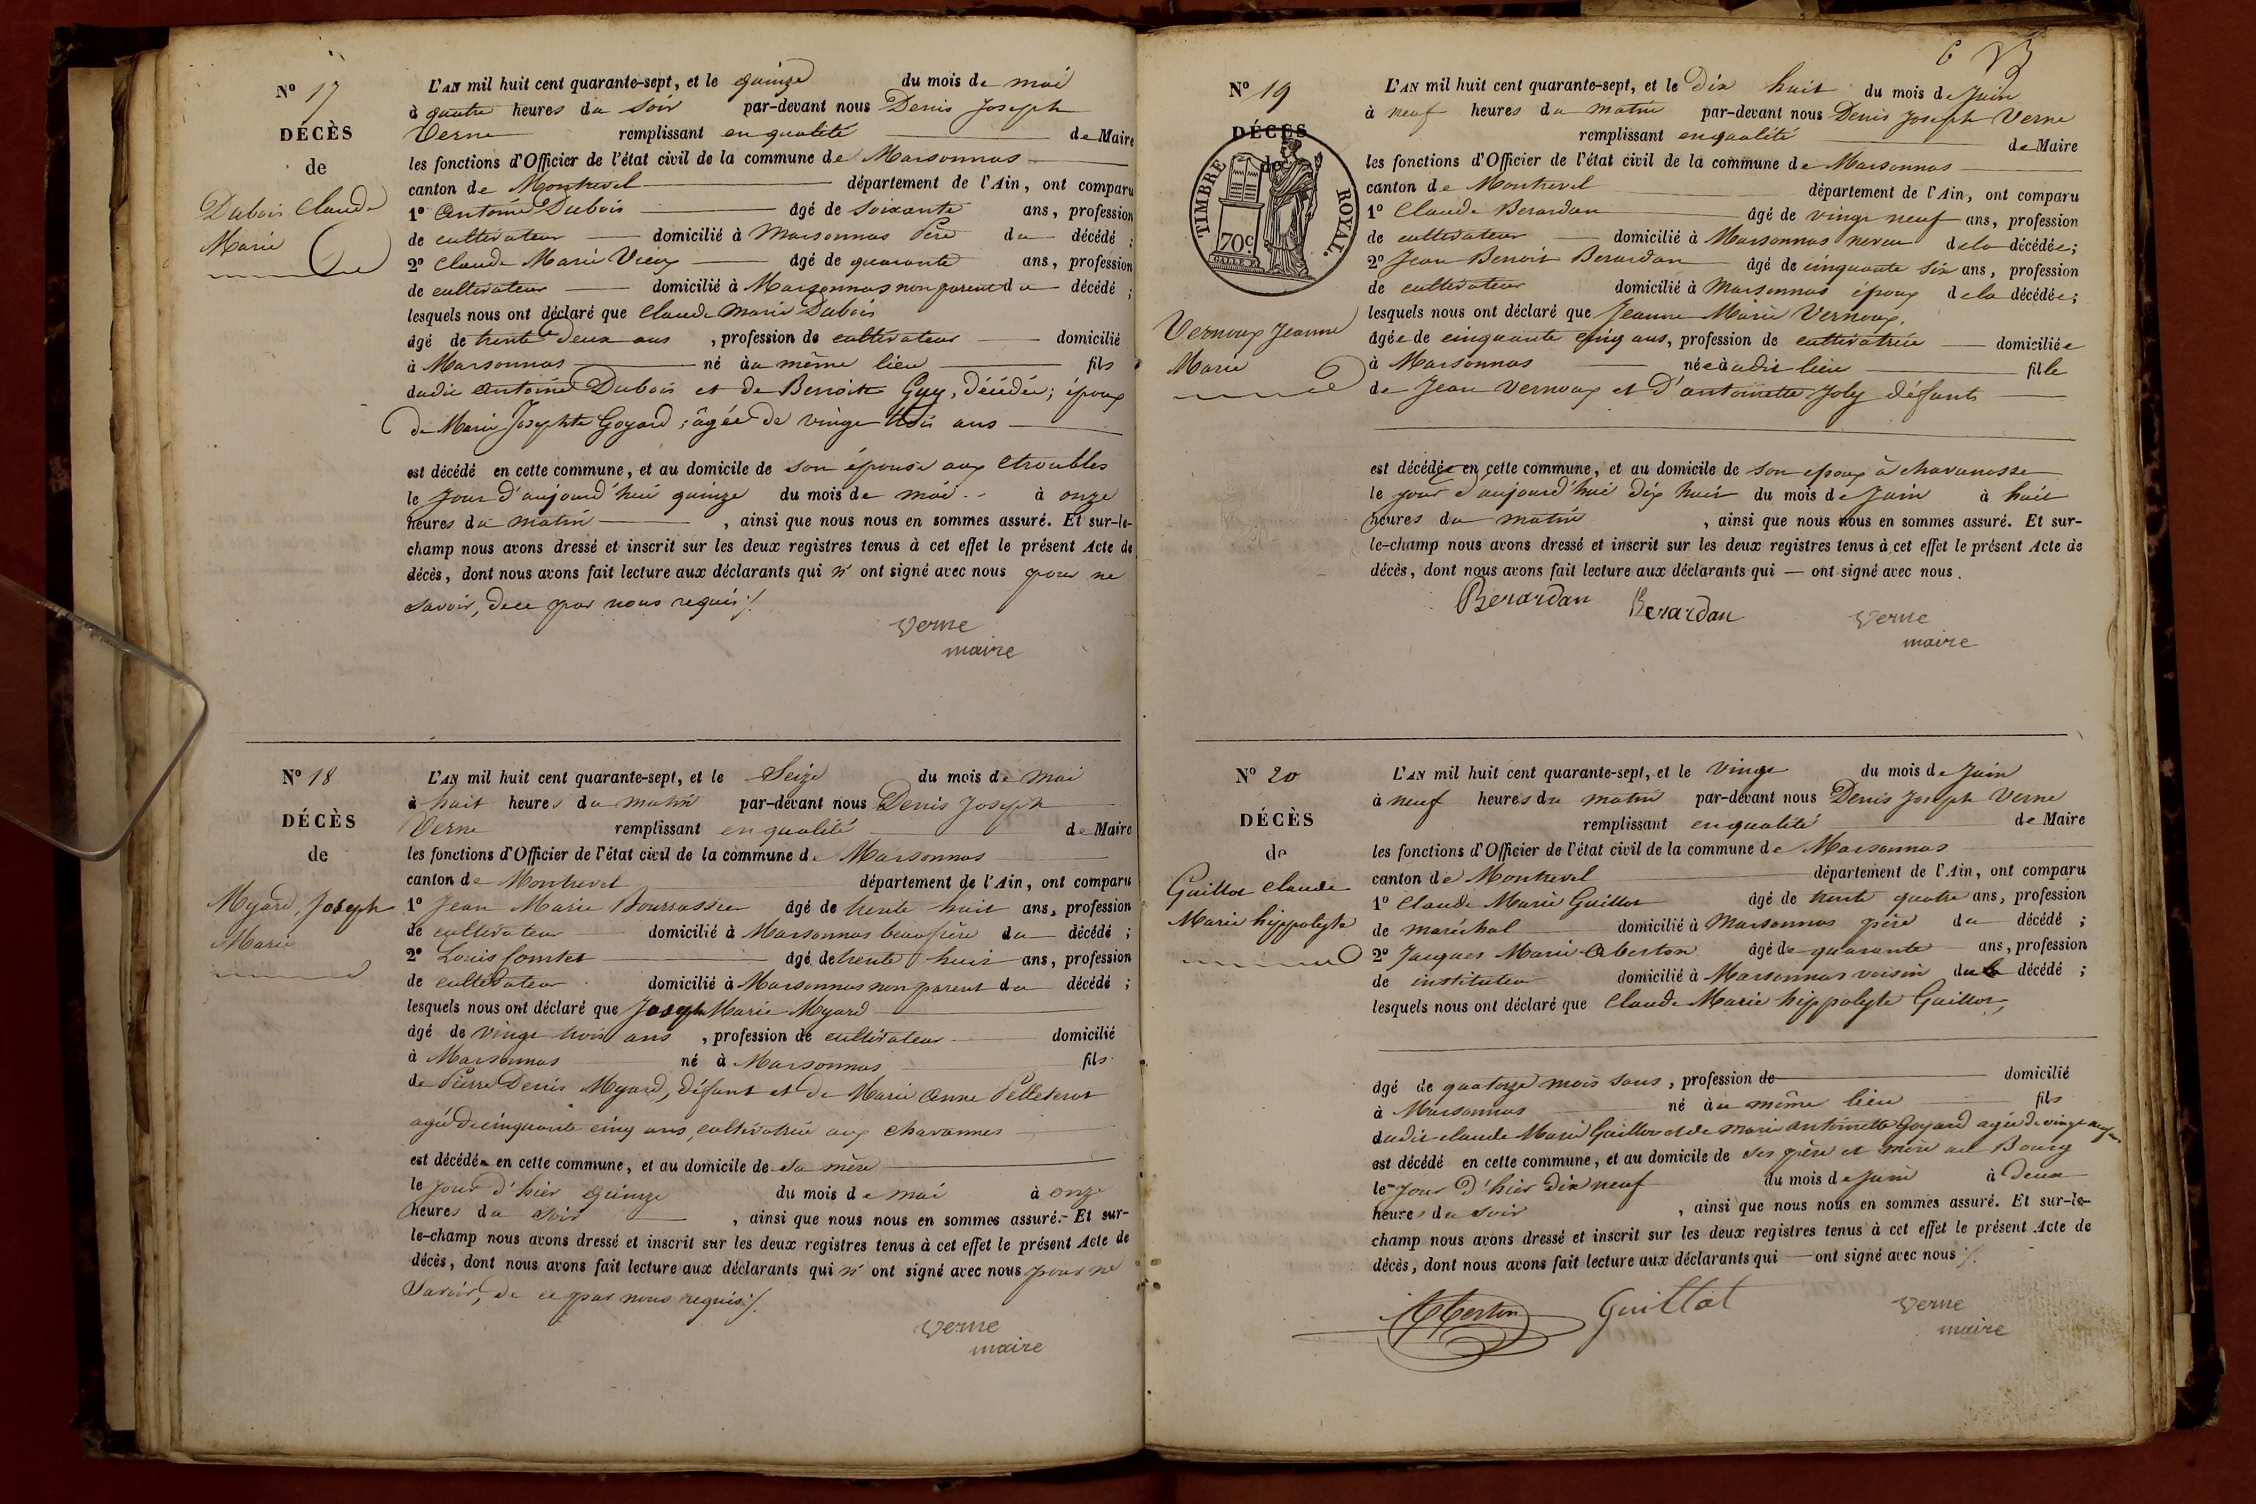 Nº 17
DÉCÈS
de
Dubois Claude
Marie
L'AN mil huit cent quarante-sept, et le quinze du mois de mai
à quatre heures du soir par-devant nous Denis Joseph
Verne remplissant en qualité de Maire
les fonctions d'Officier de l'état civil de la commune de Marsonnas
canton de Montrevel département de l'Ain, ont comparu
1º Antoine Dubois âgé de soixante ans, profession
de cultivateur domicilié à Marsonnas Père du décédé ;
2º Claude Marie Vieux âgé de quarante ans, profession
de cultivateur domicilié à Marsonnas non parent du décédé ;
lesquels nous ont déclaré que Claude Marie Dubois
âgé de trente deux ans , profession de cultivateur domicilié
à Marsonnas né au même lieu fils
dudit Antoine Dubois et de Benoite Guy, décédée ; époux
de Marie Josephte Goyard ; âgée de vingt trois ans
est décédé en cette commune, et au domicile de son épouse aux Etroubles
le jour d'aujourd'hui quinze du mois de mai à onze
heures du matin , ainsi que nous nous en sommes assuré. Et sur-le-
champ nous avons dressé et inscrit sur les deux registres tenus à cet effet le présent Acte de
décès, dont nous avons fait lecture aux déclarants qui n' ont signé avec nous pour ne
savoir, de ce par nous requis ./.
Verne
maire
Nº 18
DÉCÈS
de
Myard, Joseph
Marie
L'AN mil huit cent quarante-sept, et le Seize du mois de mai
à huit heures du matin par-devant nous Denis Joseph
Verne remplissant en qualité de Maire
les fonctions d'Officier de l'état civil de la commune de Marsonnas
canton de Montrevel département de l'Ain, ont comparu
1º Jean Marie âgé de trente huit ans, profession
de cultivateur domicilié à Marsonnas beaufrère du décédé ;
2º Louis âgé de trente huit ans, profession
de cultivateur domicilié à Marsonnas non parent du décédé ;
lesquels nous ont déclaré que Joseph Marie Myard
âgé de vingt trois ans , profession de cultivateur domicilié
à Marsonnas né à Marsonnas fils
de Pierre Denis Myard, défunt et de Marie Anne Pelleterot
agée de cinquante cinq ans, cultivatrice aux Chavannes
est décédé en cette commune, et au domicile de sa mère
le jour d'hier quinze du mois de mai à onze
heures du soir , ainsi que nous nous en sommes assuré. Et sur-
le-champ nous avons dressé et inscrit sur les deux registres tenus à cet effet le présent Acte de
décès, dont nous avons fait lecture aux déclarants qui n' ont signé avec nous pour ne
savoir, de ce par nous requis ./.
Verne
maire
6
Nº 19
DÉCÈS
de
TIMBRE ROYAL.
70 c
Vernoux Jeanne
Marie
L'AN mil huit cent quarante-sept, et le dix huit du mois de Juin
à neuf heures du matin par-devant nous Denis Joseph Verne
remplissant en qualité de Maire
les fonctions d'Officier de l'état civil de la commune de Marsonnas
canton de Montrevel département de l'Ain, ont comparu
1º Claude Berardan âgé de vingt neuf ans, profession
de cultivateur domicilié à Marsonnas neveu de la décédée ;
2º Jean Benoit Berardan âgé de cinquante six ans, profession
de cultivateur domicilié à Marsonnas époux de la décédée ;
lesquels nous ont déclaré que Jeanne Marie Vernoux,
âgée de cinquante cinq ans, profession de cultivatrice domiciliée
à Marsonnas née audit lieu fille
de Jean Vernoux et d'Antoinette Joly défunts
est décédée en cette commune, et au domicile de son époux à Chavanosse
le jour d'aujourd'hui dix huit du mois de Juin à huit
heures du matin , ainsi que nous nous en sommes assuré. Et sur-
le-champ nous avons dressé et inscrit sur les deux registres tenus à cet effet le présent Acte de
décès, dont nous avons fait lecture aux déclarants qui — ont signé avec nous.
Berardan Berardan Verne
maire
Nº 20
DÉCÈS
de
Guillot Claude
Marie hippolyte
L'AN mil huit cent quarante-sept, et le vingt du mois de Juin
à neuf heures du matin par-devant nous Denis Joseph Verne
remplissant en qualité de Maire
les fonctions d'Officier de l'état civil de la commune de Marsonnas
canton de Montrevel département de l'Ain, ont comparu
1º Claude Marie Guillot âgé de trente quatre ans, profession
de maréchal domicilié à Marsonnas père du décédé ;
2º Jacques Marie Aberton âgé de quarante ans, profession
de instituteur domicilié à Marsonnas voisin du décédé ;
lesquels nous ont déclaré que Claude Marie hippolyte Guillot,
âgé de quatorze mois sans , profession de domicilié
à Marsonnas né au même lieu fils
dudit Claude Marie Guillot et de Marie Antoinette Goyard agée de vingt neuf ans
est décédé en cette commune, et au domicile de ses père et mère au Bourg
le jour d'hier dix neuf du mois de Juin à deux
heures du soir , ainsi que nous nous en sommes assuré. Et sur-le-
champ nous avons dressé et inscrit sur les deux registres tenus à cet effet le présent Acte de
décès, dont nous avons fait lecture aux déclarants qui — ont signé avec nous ./.
Aberton Guillot Verne
maire